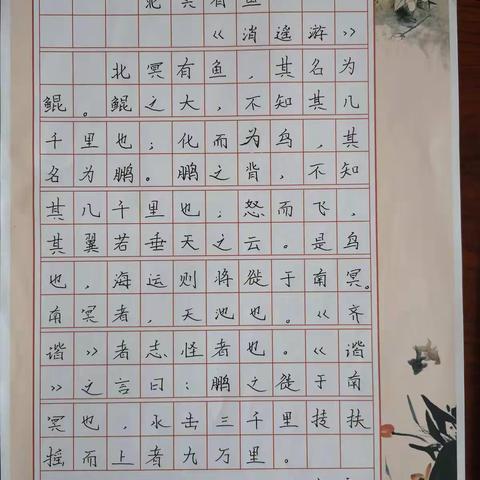 北冥有鱼
《消遥游》
北冥有鱼，其名为
鲲。鲲之大，不知其几
千里也；化而为鸟，其
名为鹏。鹏之背，不知
其几千里也；怒而飞，
其翼若垂天之云。是鸟
也，海运则将徙于南冥。
南冥者，天池也。《齐
谐》者志怪者也。《谐
》之言曰：鹏之徙于南
冥也，水击三千里技扶
摇而上者九万里。